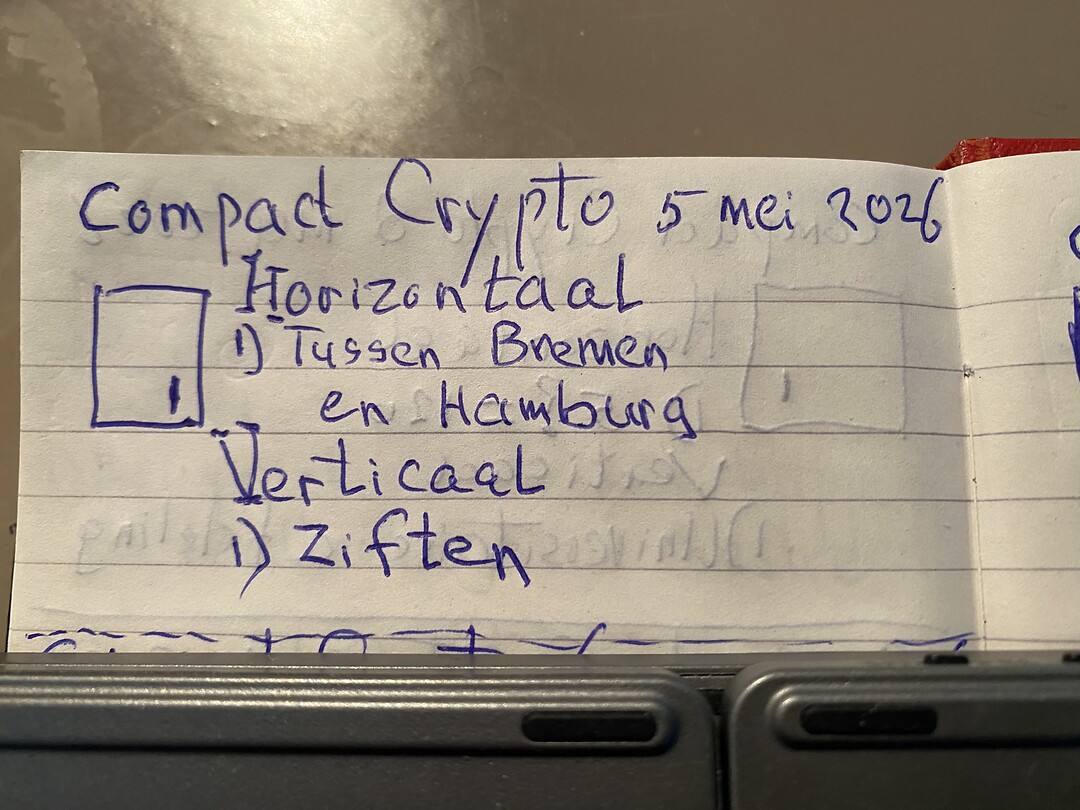 Compact Crypto 5 mei 2026
Horizontaal
1) Tussen Bremen
en Hamburg
Verticaal
1) Ziften